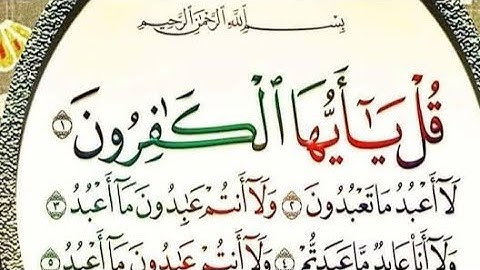 بِسْمِ اللَّهِ الرَّحْمَٰنِ الرَّحِيمِ
قُلْ يَا أَيُّهَا ٱلْكَٰفِرُونَ ١
لَا أَعْبُدُ مَا تَعْبُدُونَ ٢ وَلَا أَنتُمْ عَٰبِدُونَ مَا أَعْبُدُ ٣
وَلَا أَنَا عَابِدٌ مَّا عَبَدتُّمْ ٤ وَلَا أَنتُمْ عَٰبِدُونَ مَا أَعْبُدُ ٥